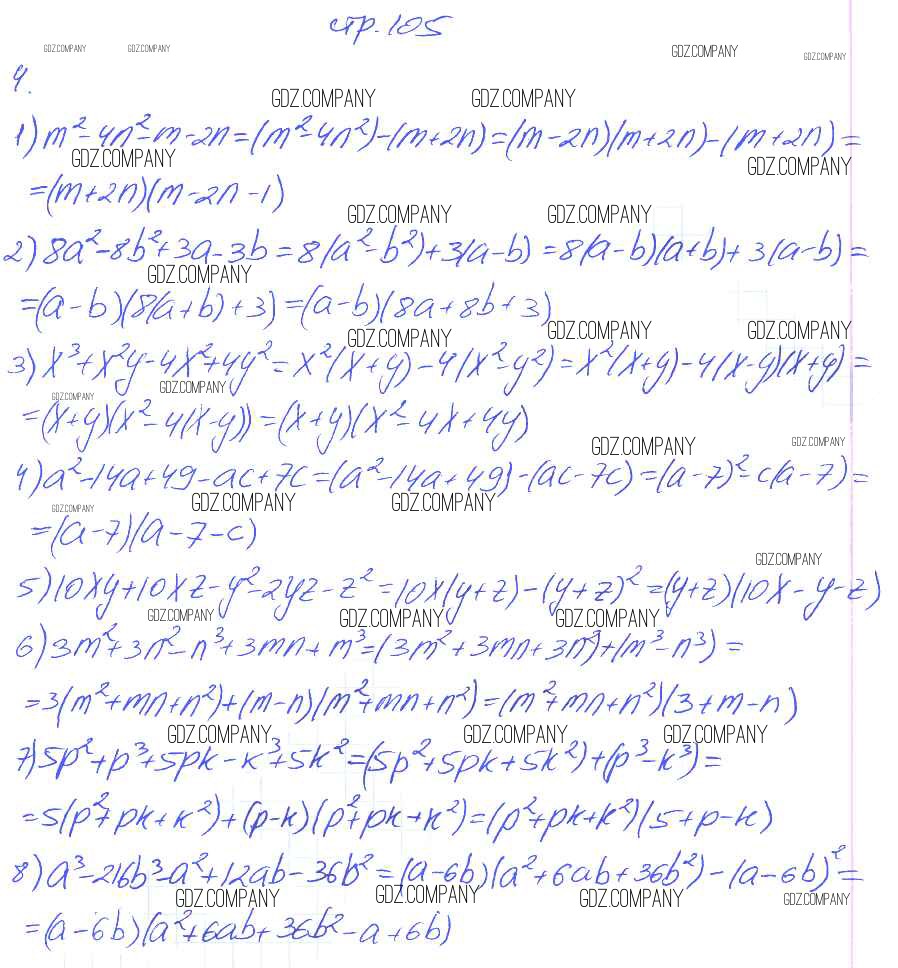 стр. 105
GDZ.COMPANY GDZ.COMPANY GDZ.COMPANY GDZ.COMPANY
4.
GDZ.COMPANY GDZ.COMPANY
1) m²-4n²-m-2n=(m²-4n²)-(m+2n)=(m-2n)(m+2n)-(m+2n)=
GDZ.COMPANY GDZ.COMPANY
=(m+2n)(m-2n-1)
GDZ.COMPANY GDZ.COMPANY
2) 8a²-8b²+3a-3b=8(a²-b²)+3(a-b)=8(a-b)(a+b)+3(a-b)=
GDZ.COMPANY
=(a-b)(8(a+b)+3)=(a-b)(8a+8b+3)
GDZ.COMPANY GDZ.COMPANY GDZ.COMPANY
3) x³+x²y-4x²+4y²=x²(x+y)-4(x²-y²)=x²(x+y)-4(x-y)(x+y)=
GDZ.COMPANY GDZ.COMPANY
=(x+y)(x²-4(x-y))=(x+y)(x²-4x+4y)
GDZ.COMPANY GDZ.COMPANY
4) a²-14a+49-ac+7c=(a²-14a+49)-(ac-7c)=(a-7)²-c(a-7)=
GDZ.COMPANY GDZ.COMPANY GDZ.COMPANY
=(a-7)(a-7-c)
GDZ.COMPANY
5) 10xy+10xz-y²-2yz-z²=10x(y+z)-(y+z)²=(y+z)(10x-y-z)
GDZ.COMPANY GDZ.COMPANY GDZ.COMPANY
6) 3m²+3n²-n³+3mn+m³=(3m²+3mn+3n²)+(m³-n³)=
=3(m²+mn+n²)+(m-n)(m²+mn+n²)=(m²+mn+n²)(3+m-n)
GDZ.COMPANY GDZ.COMPANY GDZ.COMPANY
7) 5p²+p³+5pk-k³+5k²=(5p²+5pk+5k²)+(p³-k³)=
=5(p²+pk+k²)+(p-k)(p²+pk+k²)=(p²+pk+k²)(5+p-k)
8) a³-216b³-a²+12ab-36b²=(a-6b)(a²+6ab+36b²)-(a-6b)²=
GDZ.COMPANY GDZ.COMPANY GDZ.COMPANY GDZ.COMPANY
=(a-6b)(a²+6ab+36b²-a+6b)